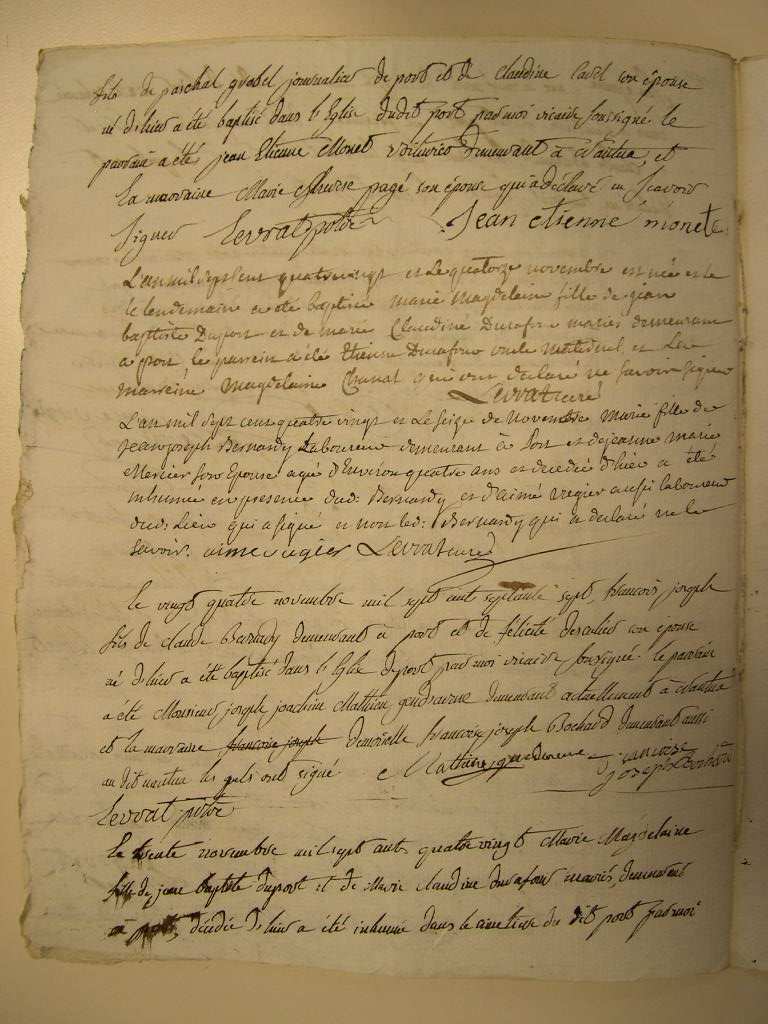 fils de paschal grobel journalier de port et de Claudine Cavet son épouse
né d'hier a été baptisé dans l'Eglise dudit port par moi vicaire soussigné. le
parrain a été jean Etienne Monet voiturier demeurant à Nantua, et
la marraine Marie Therese pagé son épouse qui a déclaré ne scavoir
signer Levrat ptre Jean etienne monet
L'an mil sept cent quatre vingt et le quatorze novembre est née et le
le lendemain a eté baptisée marie magdelaine fille de jean
baptiste Duport et de marie Claudine Durafour mariés demeurant
a port le parrein a été Etienne Durafour oncle maternel et La
marreine magdelaine qui ont declaré ne savoir signer
Levrat curé
L'an mil sept cent quatre vingt et Le seize de Novembre marie fille de
jean joseph Bernardy Laboureur demeurant à Port et de jeanne marie
Mercier son Epouse agée d'Environ quatre ans et decedée d'hier a été
inhumée en presence dud: Bernardy et d'aimé vugier aussi laboureur
dud: Lieu qui a signé et non led: Bernardy qui a declaré ne le
savoir. aimé vugier Levrat curé
le vingt quatre novembre mil sept cent septante sept, francois joseph
fils de claude Bernardy demeurant à port et de felicité son épouse
né d'hier a été baptisé dans l'Eglise de port par moi vicaire soussigné. le parrain
a été Monsieur joseph joachim Mathieu demeurant actuellement à Nantua
et la marraine francoise joseph demoiselle francoise joseph Bochard demeurant aussi
au dit nantua les quels ont signé Mathieu francoise
joseph Bochard
Levrat ptre
Le trente novembre mil sept cent quatre vingt Marie Magdelaine
fille de jean baptiste duport et de Marie claudine durafour mariés, demeurant
à port, décédée d'hier a été inhumée dans le cimetiere du dit port par moi